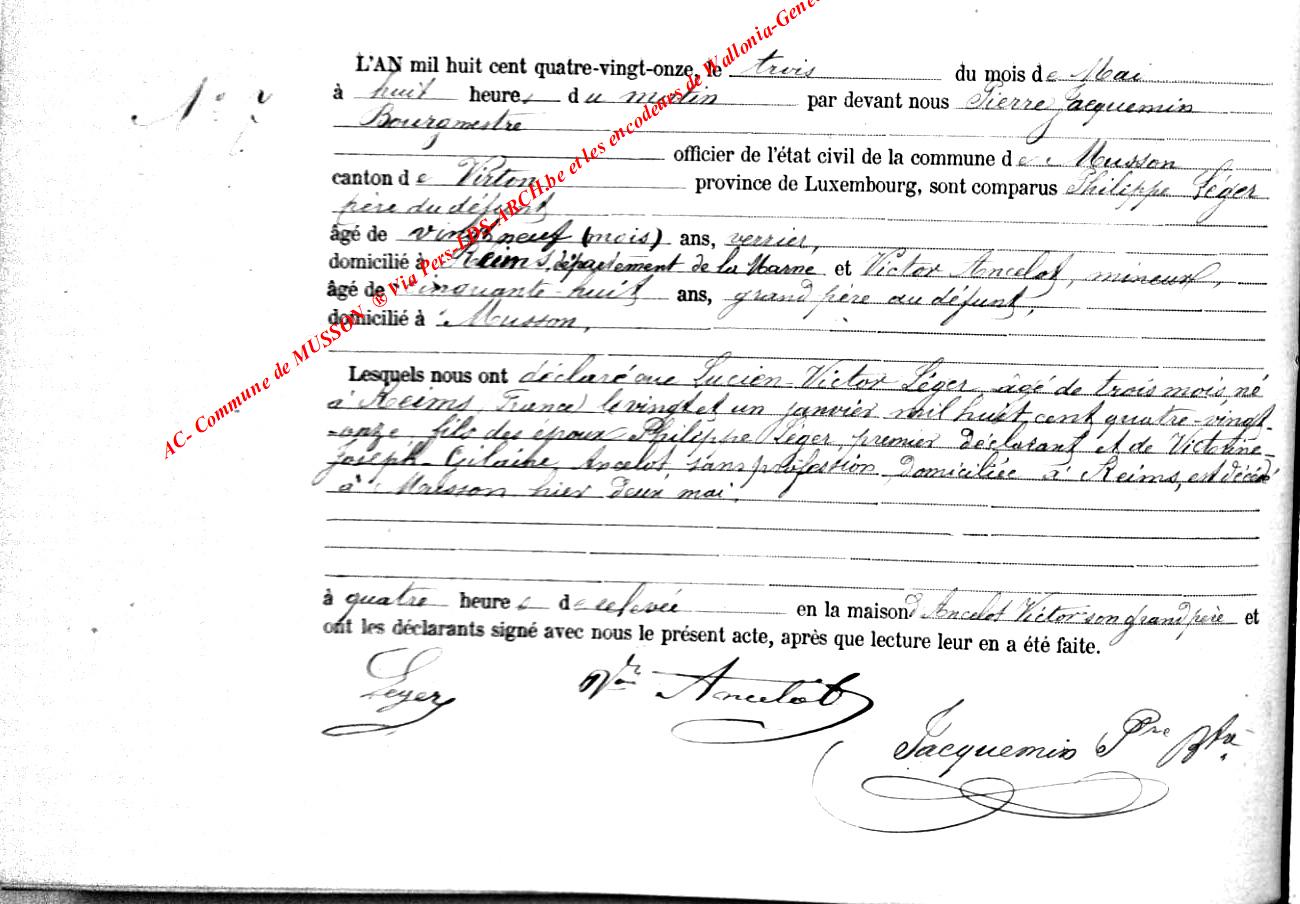 L'AN mil huit cent quatre-vingt-onze, le trois du mois de Mai
N° 7
à huit heures du matin par devant nous Pierre Jacquemin
Bourgmestre
officier de l'état civil de la commune de Musson
canton de Virton province de Luxembourg, sont comparus Philippe Léger
père du défunt
âgé de vingt neuf (mois) ans, verrier,
domicilié à Reims, département de la Marne et Victor Ancelot, mineur,
âgé de cinquante-huit ans, grand père au défunt,
domicilié à Musson,
Lesquels nous ont déclaré que Lucien-Victor Léger, âgé de trois mois, né
à Reims, (France) le vingt et un janvier mil huit cent quatre-vingt-
-onze, fils des époux Philippe Léger, premier déclarant et de Victorine-
Joseph- Ancelot, sans profession, domiciliée à Reims, est décédé
à Musson hier deux mai.
à quatre heures de relevée en la maison d'Ancelot Victor son grand père et
ont les déclarants signé avec nous le présent acte, après que lecture leur en a été faite.
Leger Vor Ancelot
Jacquemin Pre
AC- Commune de MUSSON ® Via Pers-LDS-ARCH.be et les encodeurs de Wallonia-Gene